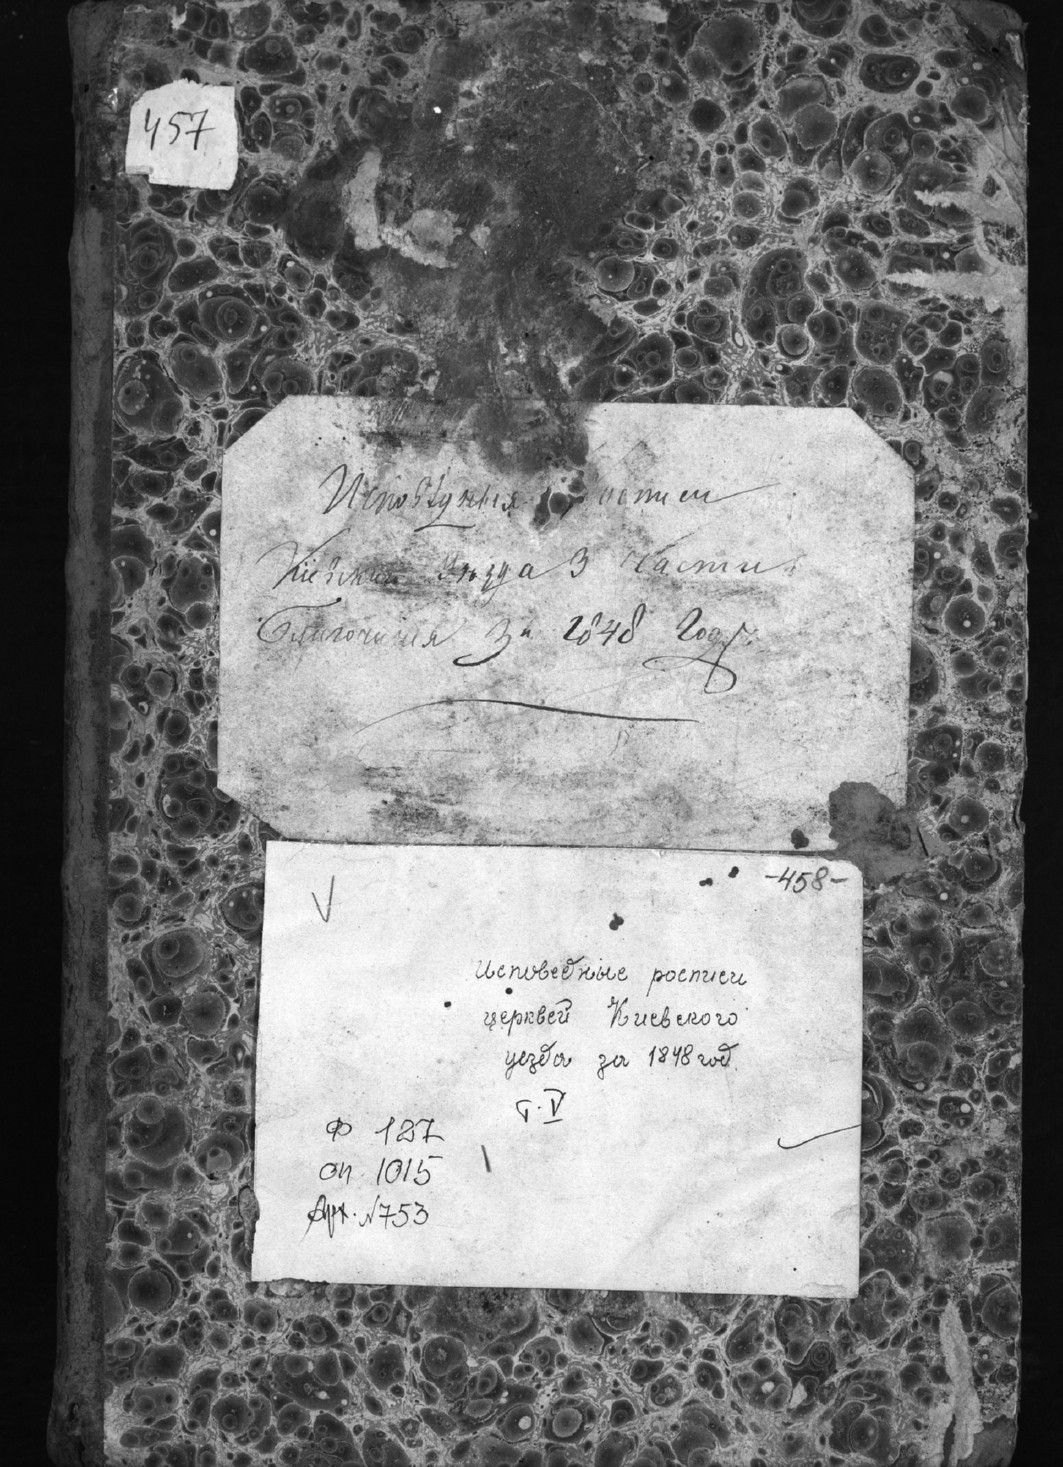 457
Исповѣдныя росписи
Кіевскаго Уѣзда 3 Части
Благочинія За 1848 Годъ.
-458-
V
Исповедные росписи
церквей Киевского
уезда за 1848 год.
т. V
Ф 127
оп. 1015
Арх. №753